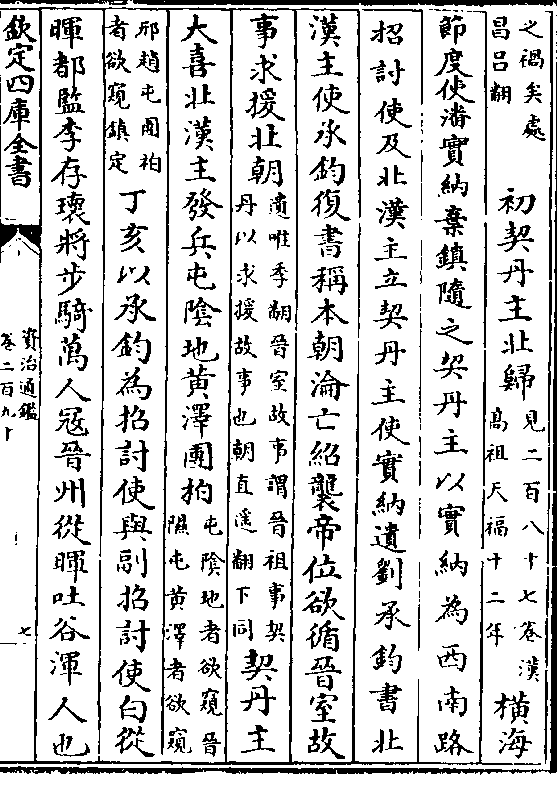 之禍矣處昌呂翻初契丹主北歸見二百八十七卷漢高祖天福十二年橫海
節度使潘實納棄鎮隨之契丹主以實納為西南路
招討使及北漢主立契丹主使實納遺劉承鈞書北
漢主使承鈞復書稱本朝淪亡紹襲帝位欲循晉室故
事求援北朝遺唯季翻晉室故事謂晉祖事契丹以求援故事也朝直遙翻下同契丹主
大喜北漢主發兵屯陰地黃澤團柏屯陰地者欲窺晉隰屯黃澤者欲窺
邢趙屯團柏者欲窺鎮定丁亥以承鈞為招討使與副招討使白從
暉都監李存瓌將步騎萬人冦晉州從暉吐谷渾人也
欽定四庫全書
資治通鑑
卷二百九十
七